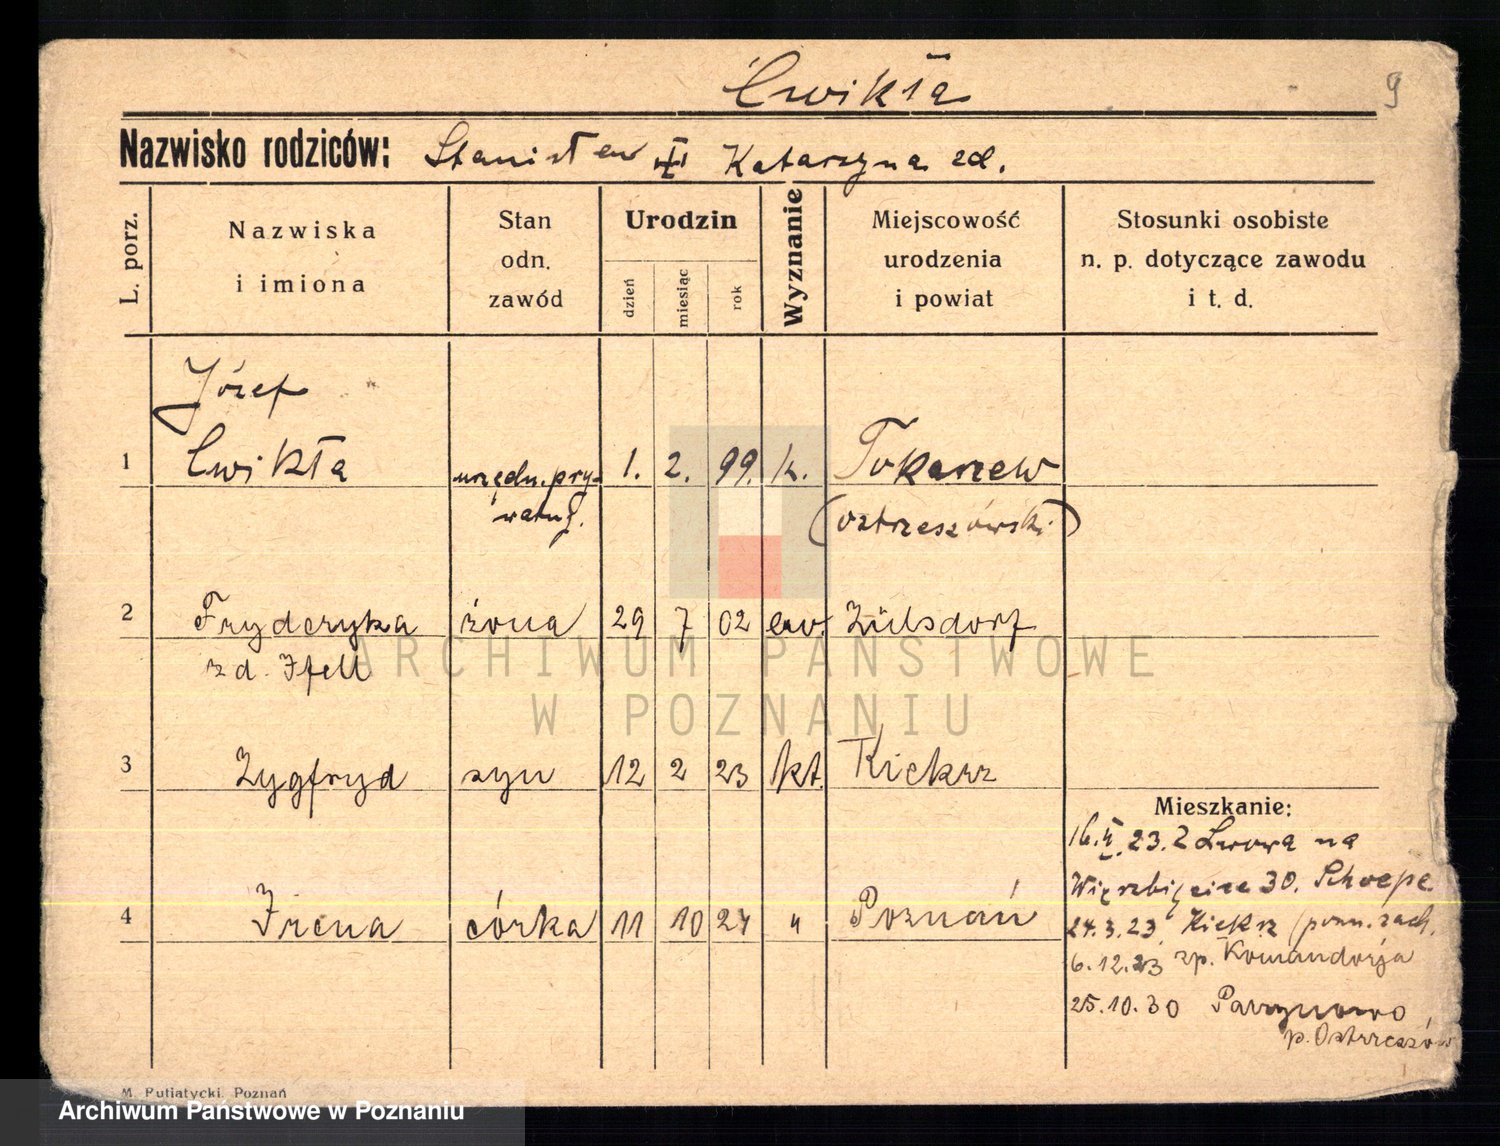 Ćwikła
9
Nazwisko rodziców: Stanisław Katarzyna zd.
L. porz.
Nazwiska
i imiona
Stan
odn.
zawód
Urodzin
dzień
miesiąc
rok
Wyznanie
Miejscowość
urodzenia
i powiat
Stosunki osobiste
n. p. dotyczące zawodu
i t. d.
Józef
1 Ćwikła urzędn. pry- 1. 2. 99. k. Tokarzew
watny. (ostrzeszowski)
2 Fryderyka żona 29 7 02 ew. Zülsdorf
zd. Ifell
3 Zygfryd syn 12 2 23 kt. Kiekrz
Mieszkanie:
16. II. 23. Z Lwowa na
Wierzbięcice 30. Schoepe
4 Irena córka 11 10 24 " Poznań
24.3.23. Kiekrz (pozn. zach.
6.12.23 zp. Komandorja
25.10.30 Parzynowo
p. Ostrzeszów
M. Putiatycki, Poznań
ARCHIWUM PAŃSTWOWE
W POZNANIU
Archiwum Państwowe w Poznaniu